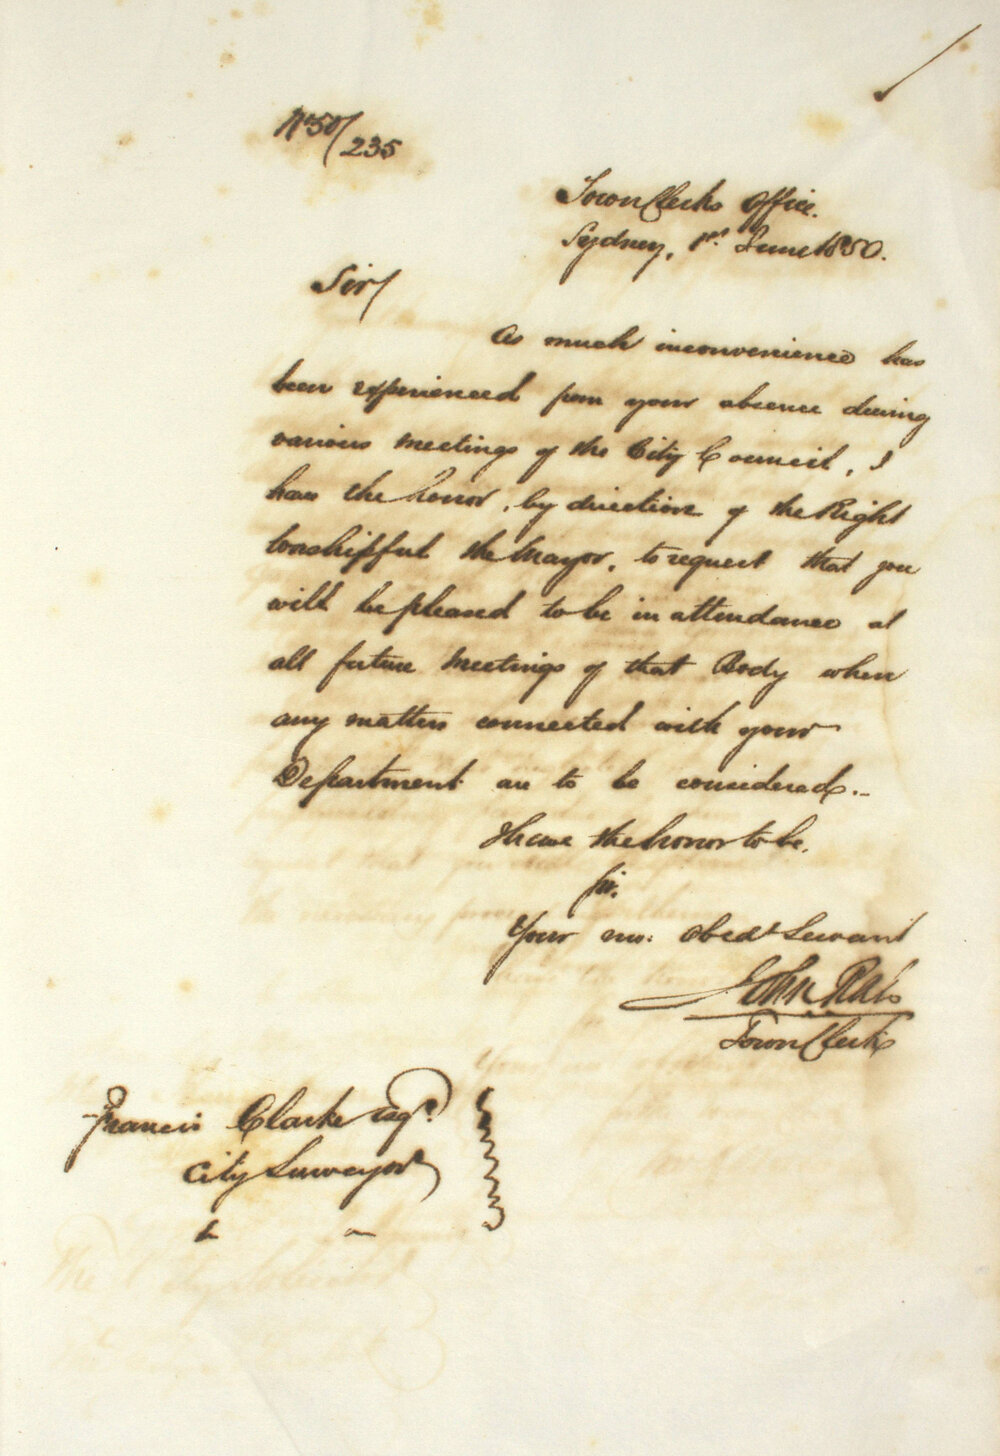 No 50/
235
Town Clerks Office.
Sydney, 1st. June 1850.
Sir/
As much inconvenience has
been experienced from your absence during
various meetings of the City Council, I
have the honor, by direction of the Right
Worshipful the Mayor, to request that you
will be pleased to be in attendance at
all future Meetings of that Body when
any matters connected with your
Department are to be considered.-
I have the honor to be,
Sir,
Your mo: Obedt Servant
John Rae
Town Clerk
Francis Clarke Esqr.
City Surveyor